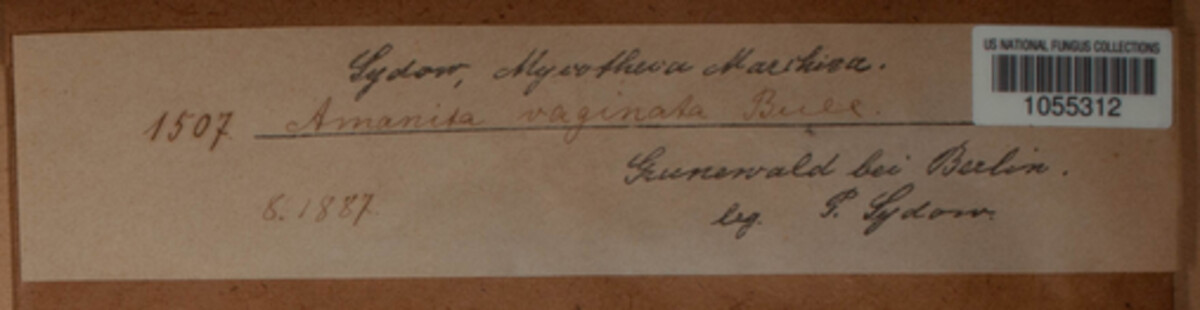 Sydow, Mycotheca Marchica.
US NATIONAL FUNGUS COLLECTIONS
1055312
1507. Amanita vaginata Bull.
Grunewald bei Berlin.
8. 1887.
leg. P. Sydow.